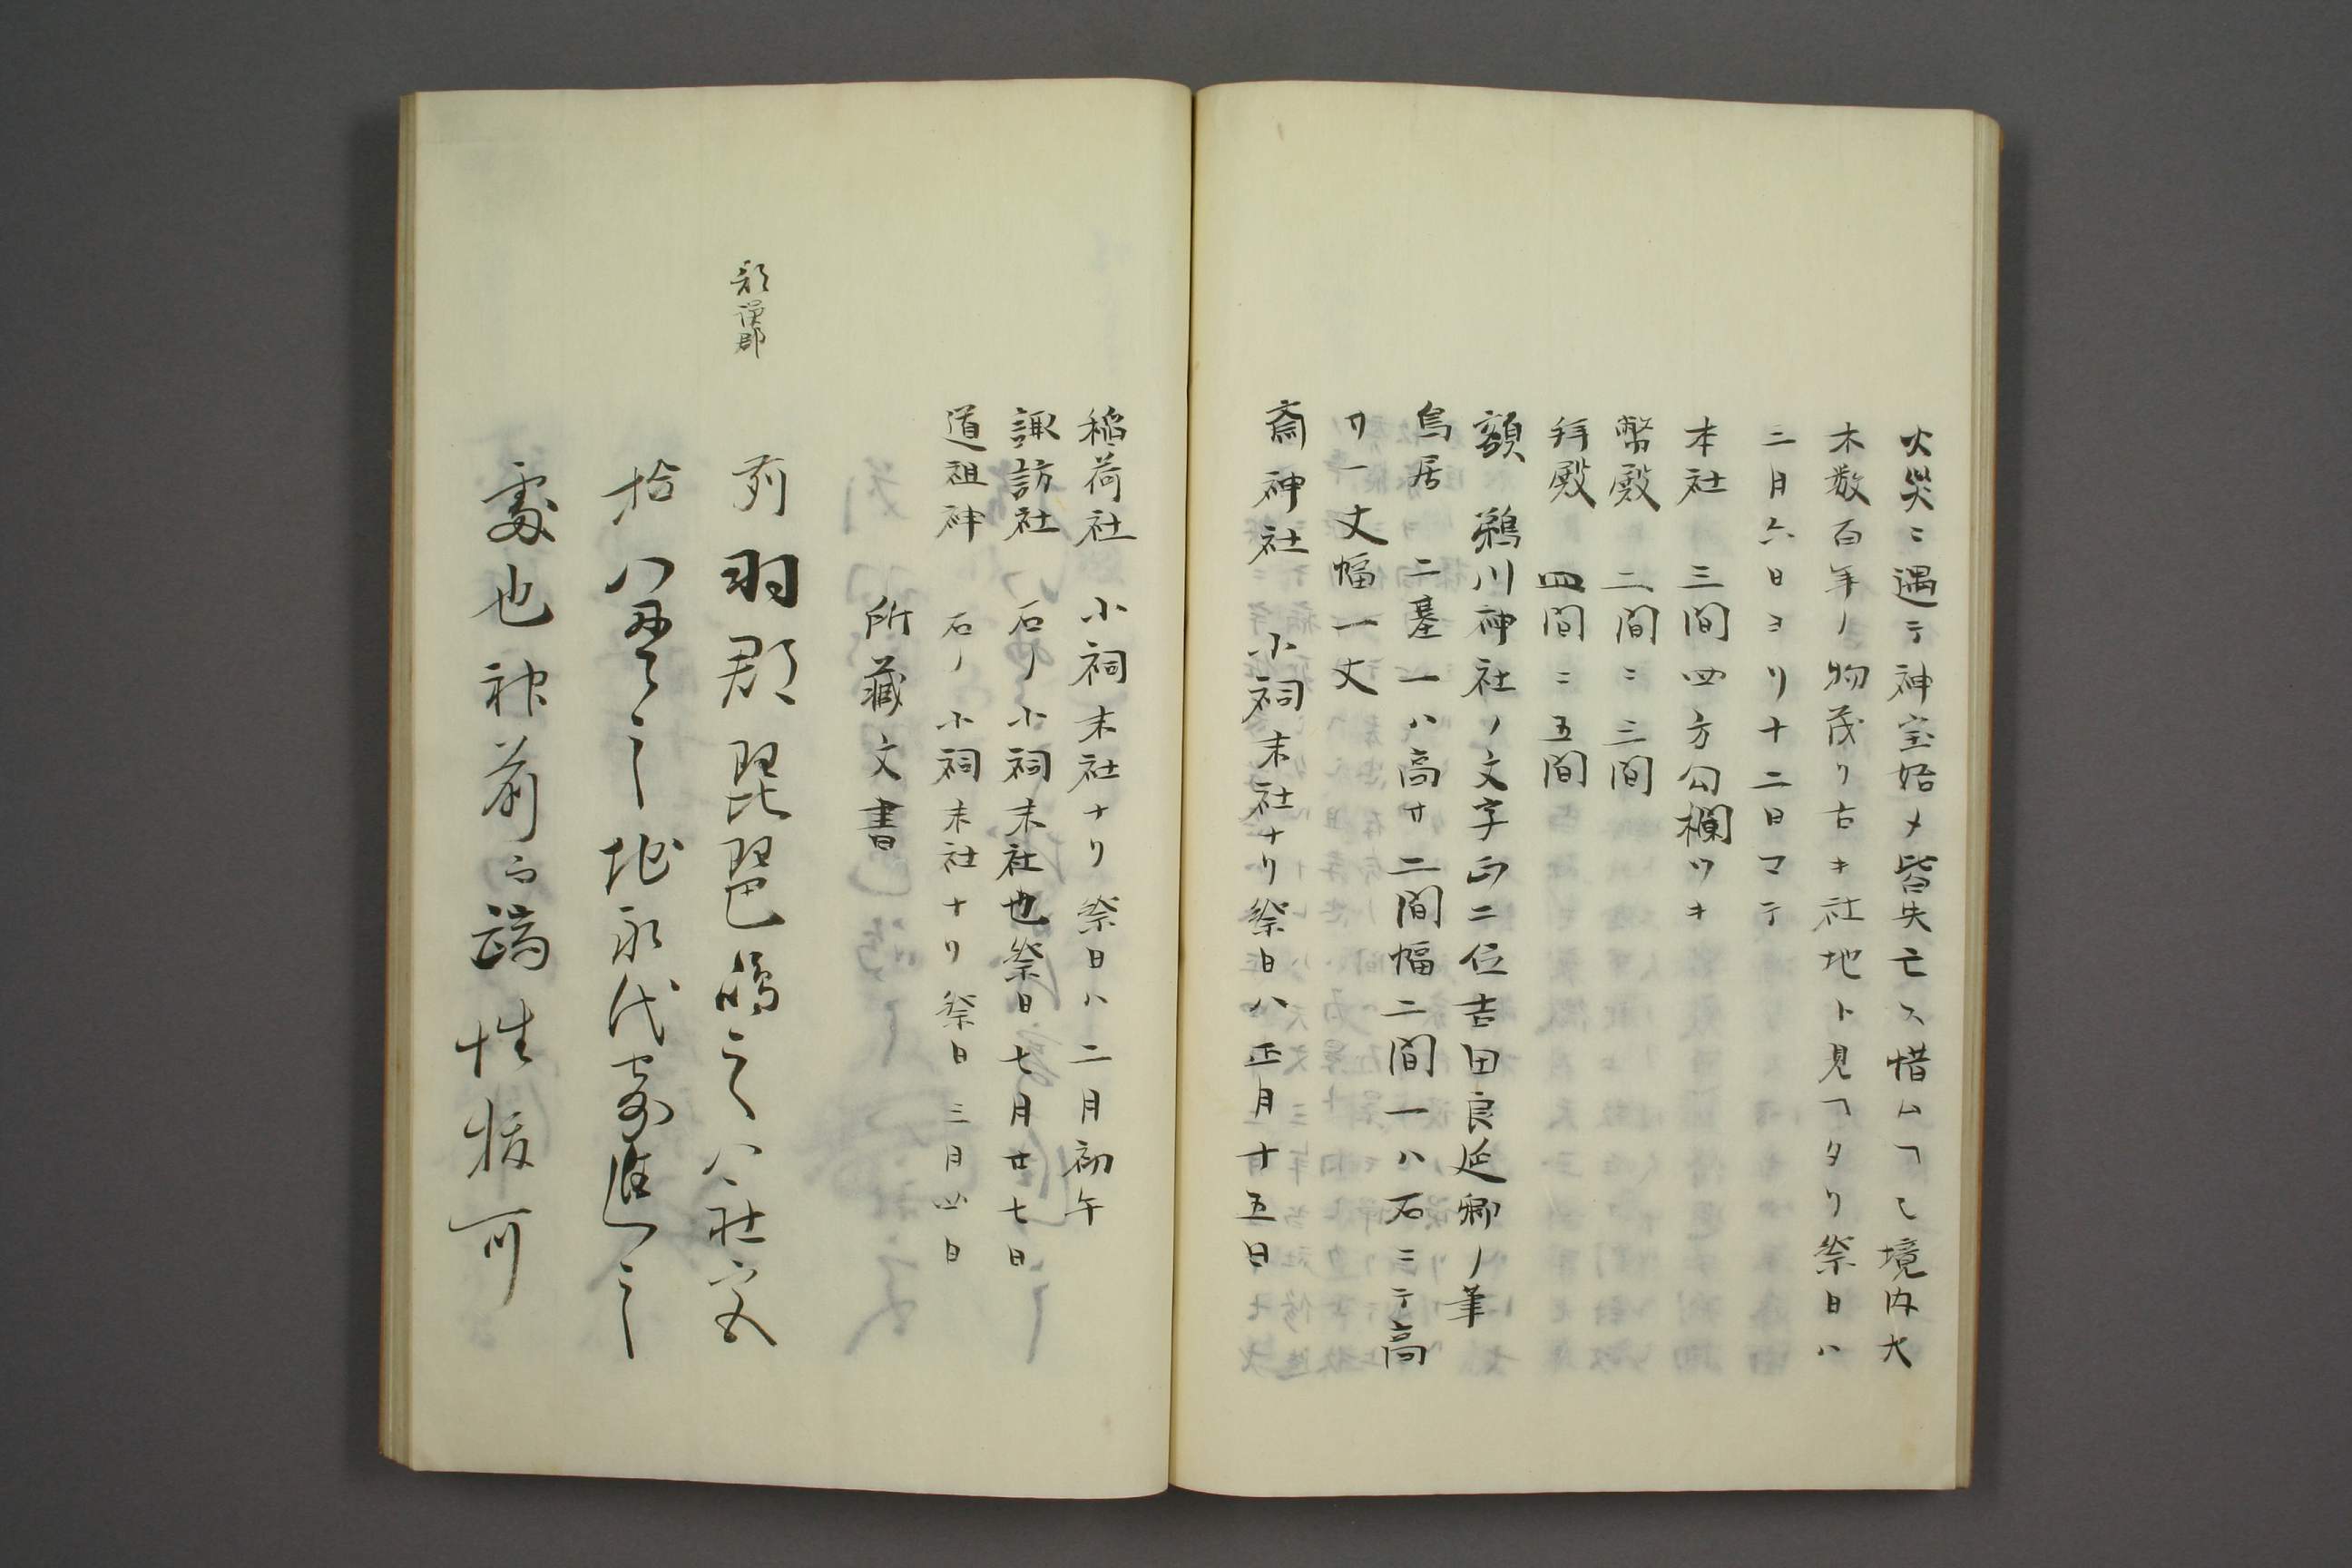 火災ニ遇テ神宝始メ皆失亡ス惜ムヿ也境内大
木数百年ノ物茂リ古キ社地ト見ヘタリ祭日ハ
三月六日ヨリ十二日マテ
本社 三間四方勾欄ツキ
幣殿 二間ニ三間
拝殿 四間ニ五間
額 鵜川神社ノ文字正二位吉田良延卿ノ筆
鳥居 二基一ハ高サ二間幅二間一ハ石ニテ高
サ一丈幅一丈
斎神社 小祠末社ナリ祭日ハ正月十五日
稲荷社 小祠末社ナリ祭日ハ二月初午
諏訪社 石ノ小祠末社也祭日七月廿七日
道祖神 石ノ小祠末社ナリ祭日三月四日
所蔵文書
郡
苅羽郡琵琶嶋之八社宮
拾八之地永代寄進之
處也神前